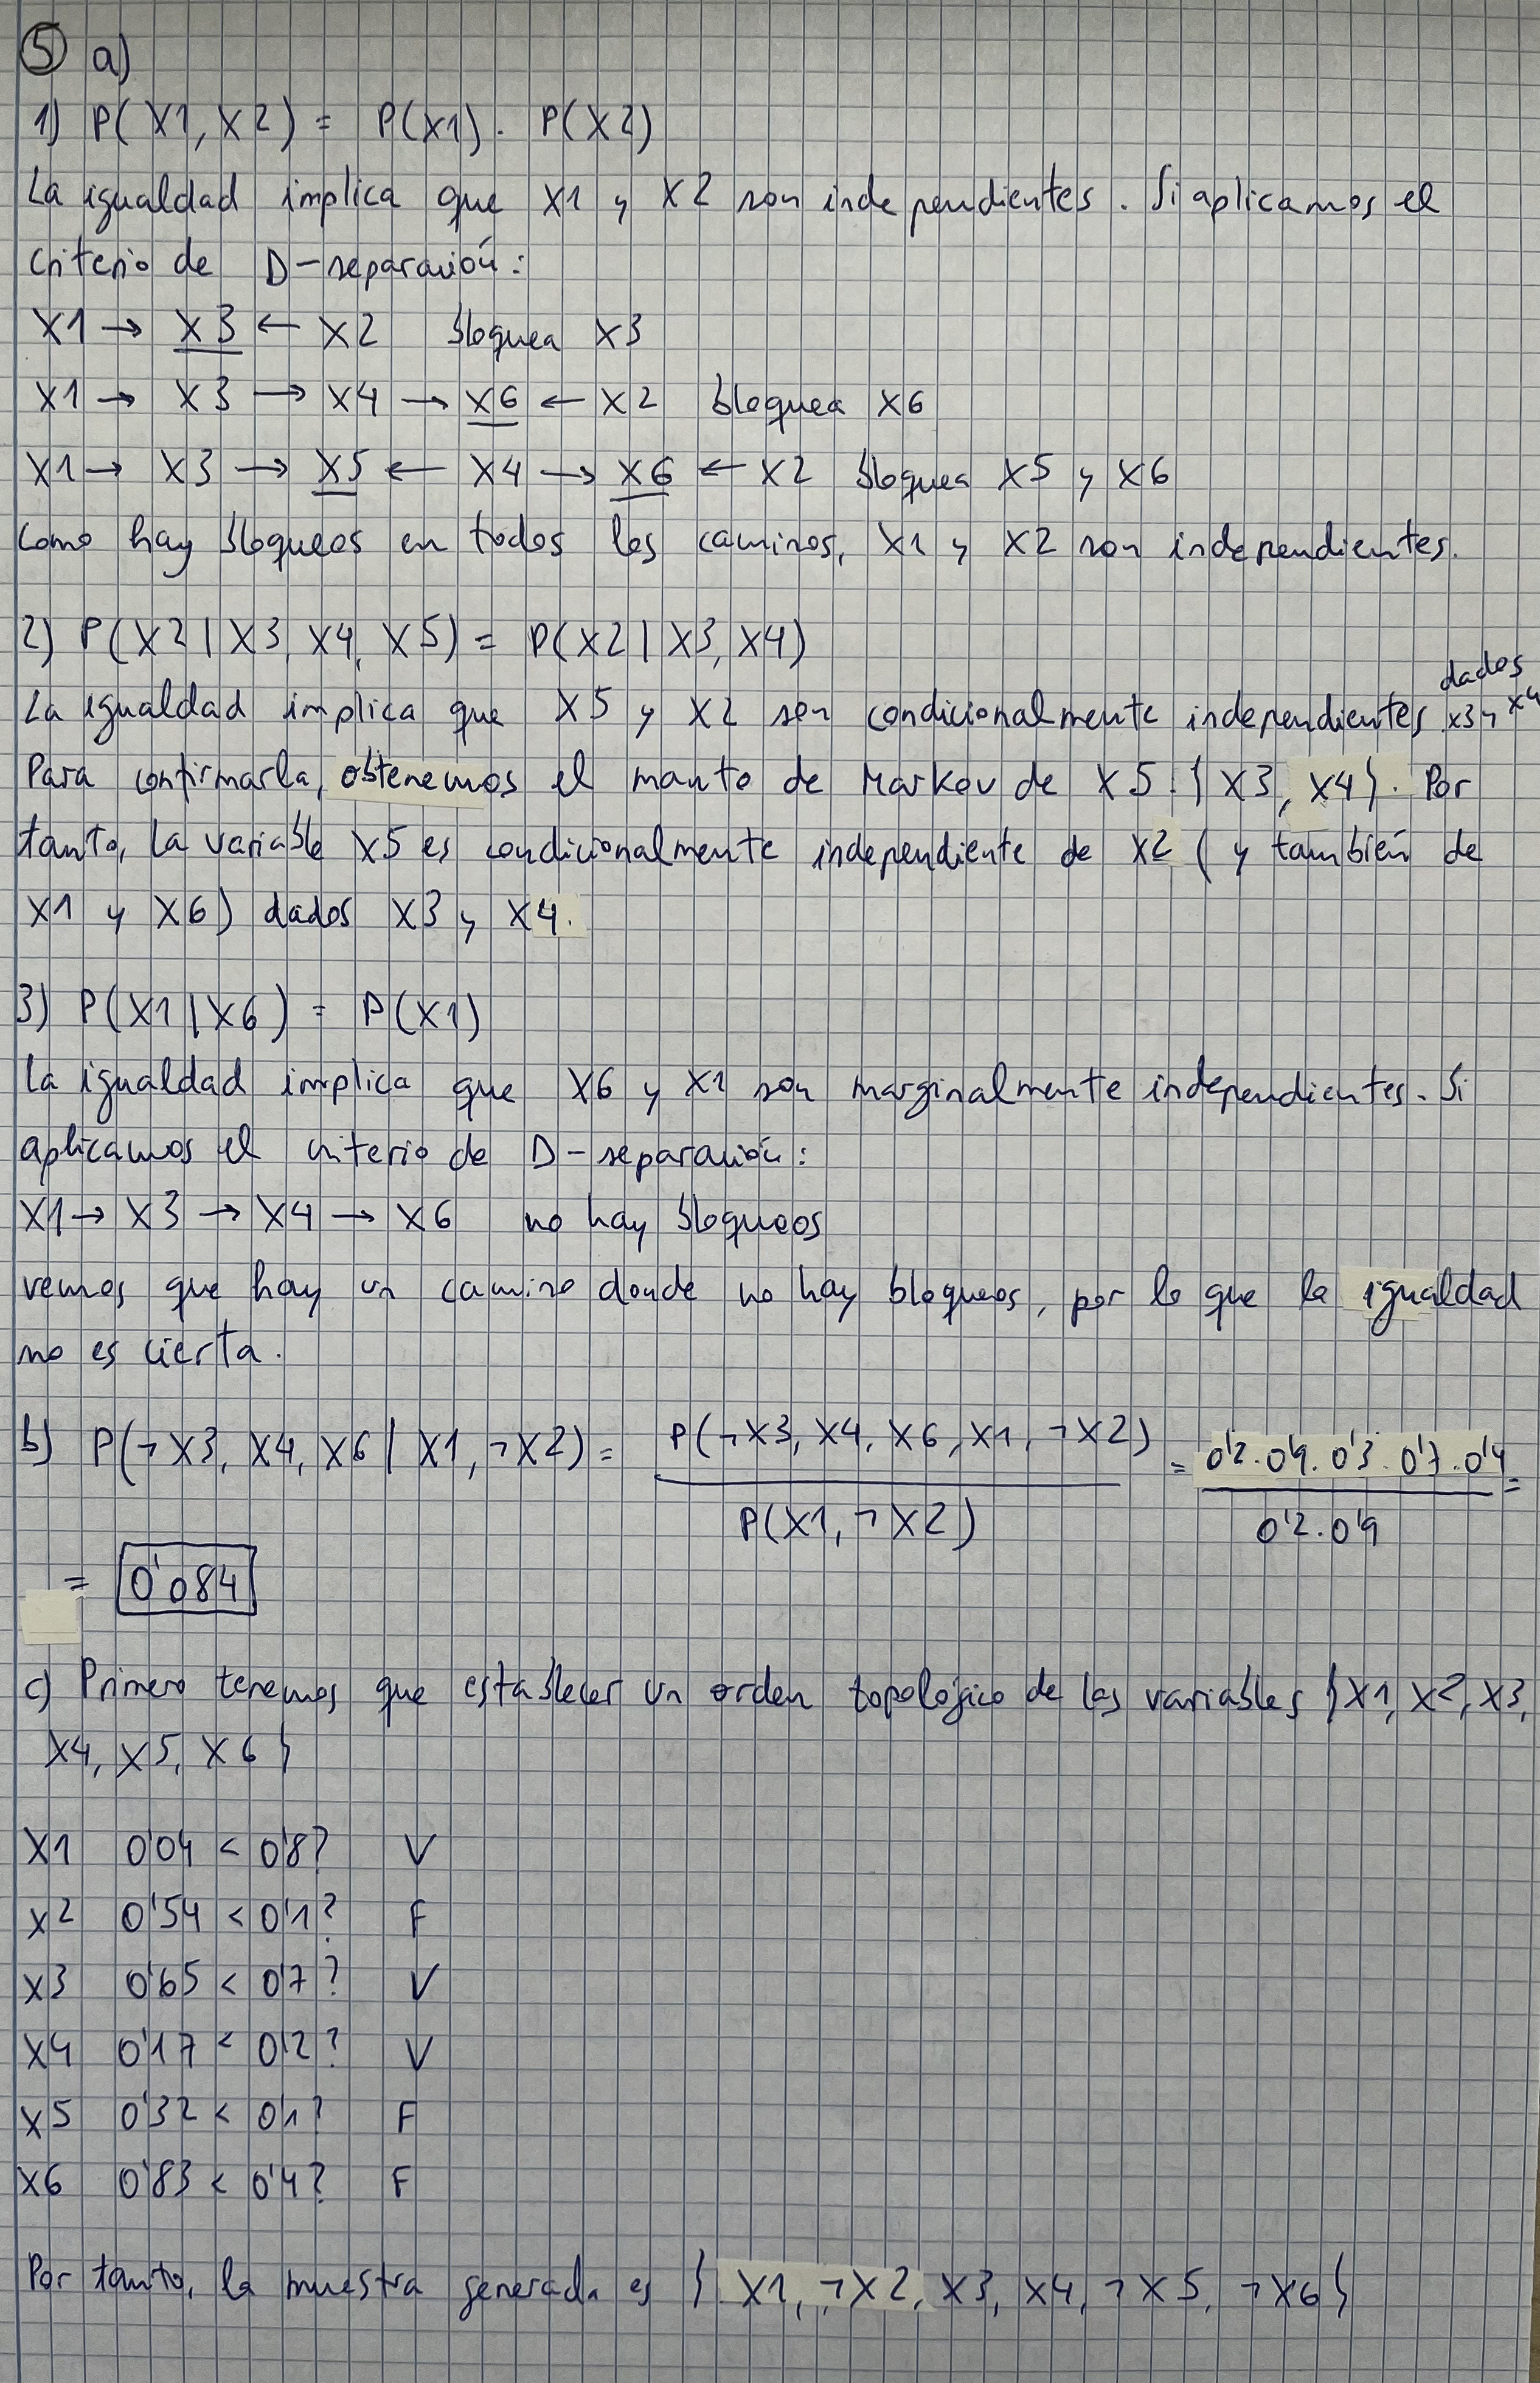 5 a)
1) P(X1, X2) = P(X1) · P(X2)
La igualdad implica que X1 y X2 son independientes. Si aplicamos el
criterio de D-separación:
X1 → X3 ← X2 bloquea X3
X1 → X3 → X4 → X6 ← X2 bloquea X6
X1 → X3 → X5 ← X4 → X6 ← X2 bloquea X5 y X6
Como hay bloqueos en todos los caminos, X1 y X2 son independientes.
2) P(X2 | X3, X4, X5) = P(X2 | X3, X4)
La igualdad implica que X5 y X2 son condicionalmente independientes dados X3 y X4.
Para confirmarla, obtenemos el manto de Markov de X5: {X3, X4}. Por
tanto, la variable X5 es condicionalmente independiente de X2 (y también de
X1 y X6) dados X3 y X4.
3) P(X1 | X6) = P(X1)
La igualdad implica que X6 y X1 son marginalmente independientes. Si
aplicamos el criterio de D-separación:
X1 → X3 → X4 → X6 no hay bloqueos
vemos que hay un camino donde no hay bloqueos, por lo que la igualdad
no es cierta.
b) P(¬X3, X4, X6 | X1, ¬X2) = P(¬X3, X4, X6, X1, ¬X2) / P(X1, ¬X2) = 0'2 · 0'9 · 0'3 · 0'7 · 0'4 / 0'2 · 0'9 =
= 0'084
c) Primero tenemos que establecer un orden topológico de las variables {X1, X2, X3,
X4, X5, X6}
X1 0'04 < 0'8? V
X2 0'54 < 0'1? F
X3 0'65 < 0'7? V
X4 0'17 < 0'2? V
X5 0'32 < 0'1? F
X6 0'83 < 0'4? F
Por tanto, la muestra generada es {X1, ¬X2, X3, X4, ¬X5, ¬X6}